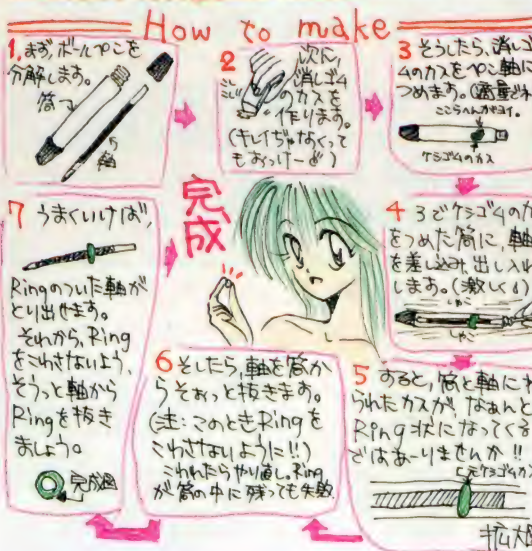 How to make
1. まず、ボールペンを
分解します。
筒
軸
2 次に、
消しゴム
のカスを
作ります。
(キレイぢゃなくって
もおっけーど)
3 そうしたら、消しゴ
ムのカスをペン軸に
つめます。(適量ね
ここらへんがヨイ。
ケシゴムのカス
4 3でケシゴムのカ
をつめた筒に、軸
を差し込み、出し入れ
します。(激しく!)
しゃこ
しゃこ
5 すると、筒と軸に
られたカスが、なぁんと
Ring状になってくる
ではあーりませんか!!
ケシゴムのカ
拡大図
6 そしたら、軸を筒か
らそぉっと抜きます。
(注:このときRingを
こわさないように!!)
こわれたらやり直し。Ring
が筒の中に残っても失敗
7 うまくいけば、
Ringのついた軸が
とり出せます。
それから、Ring
をこわさないよう、
そうっと軸から
Ringを抜き
ましょう。
完成図
完成